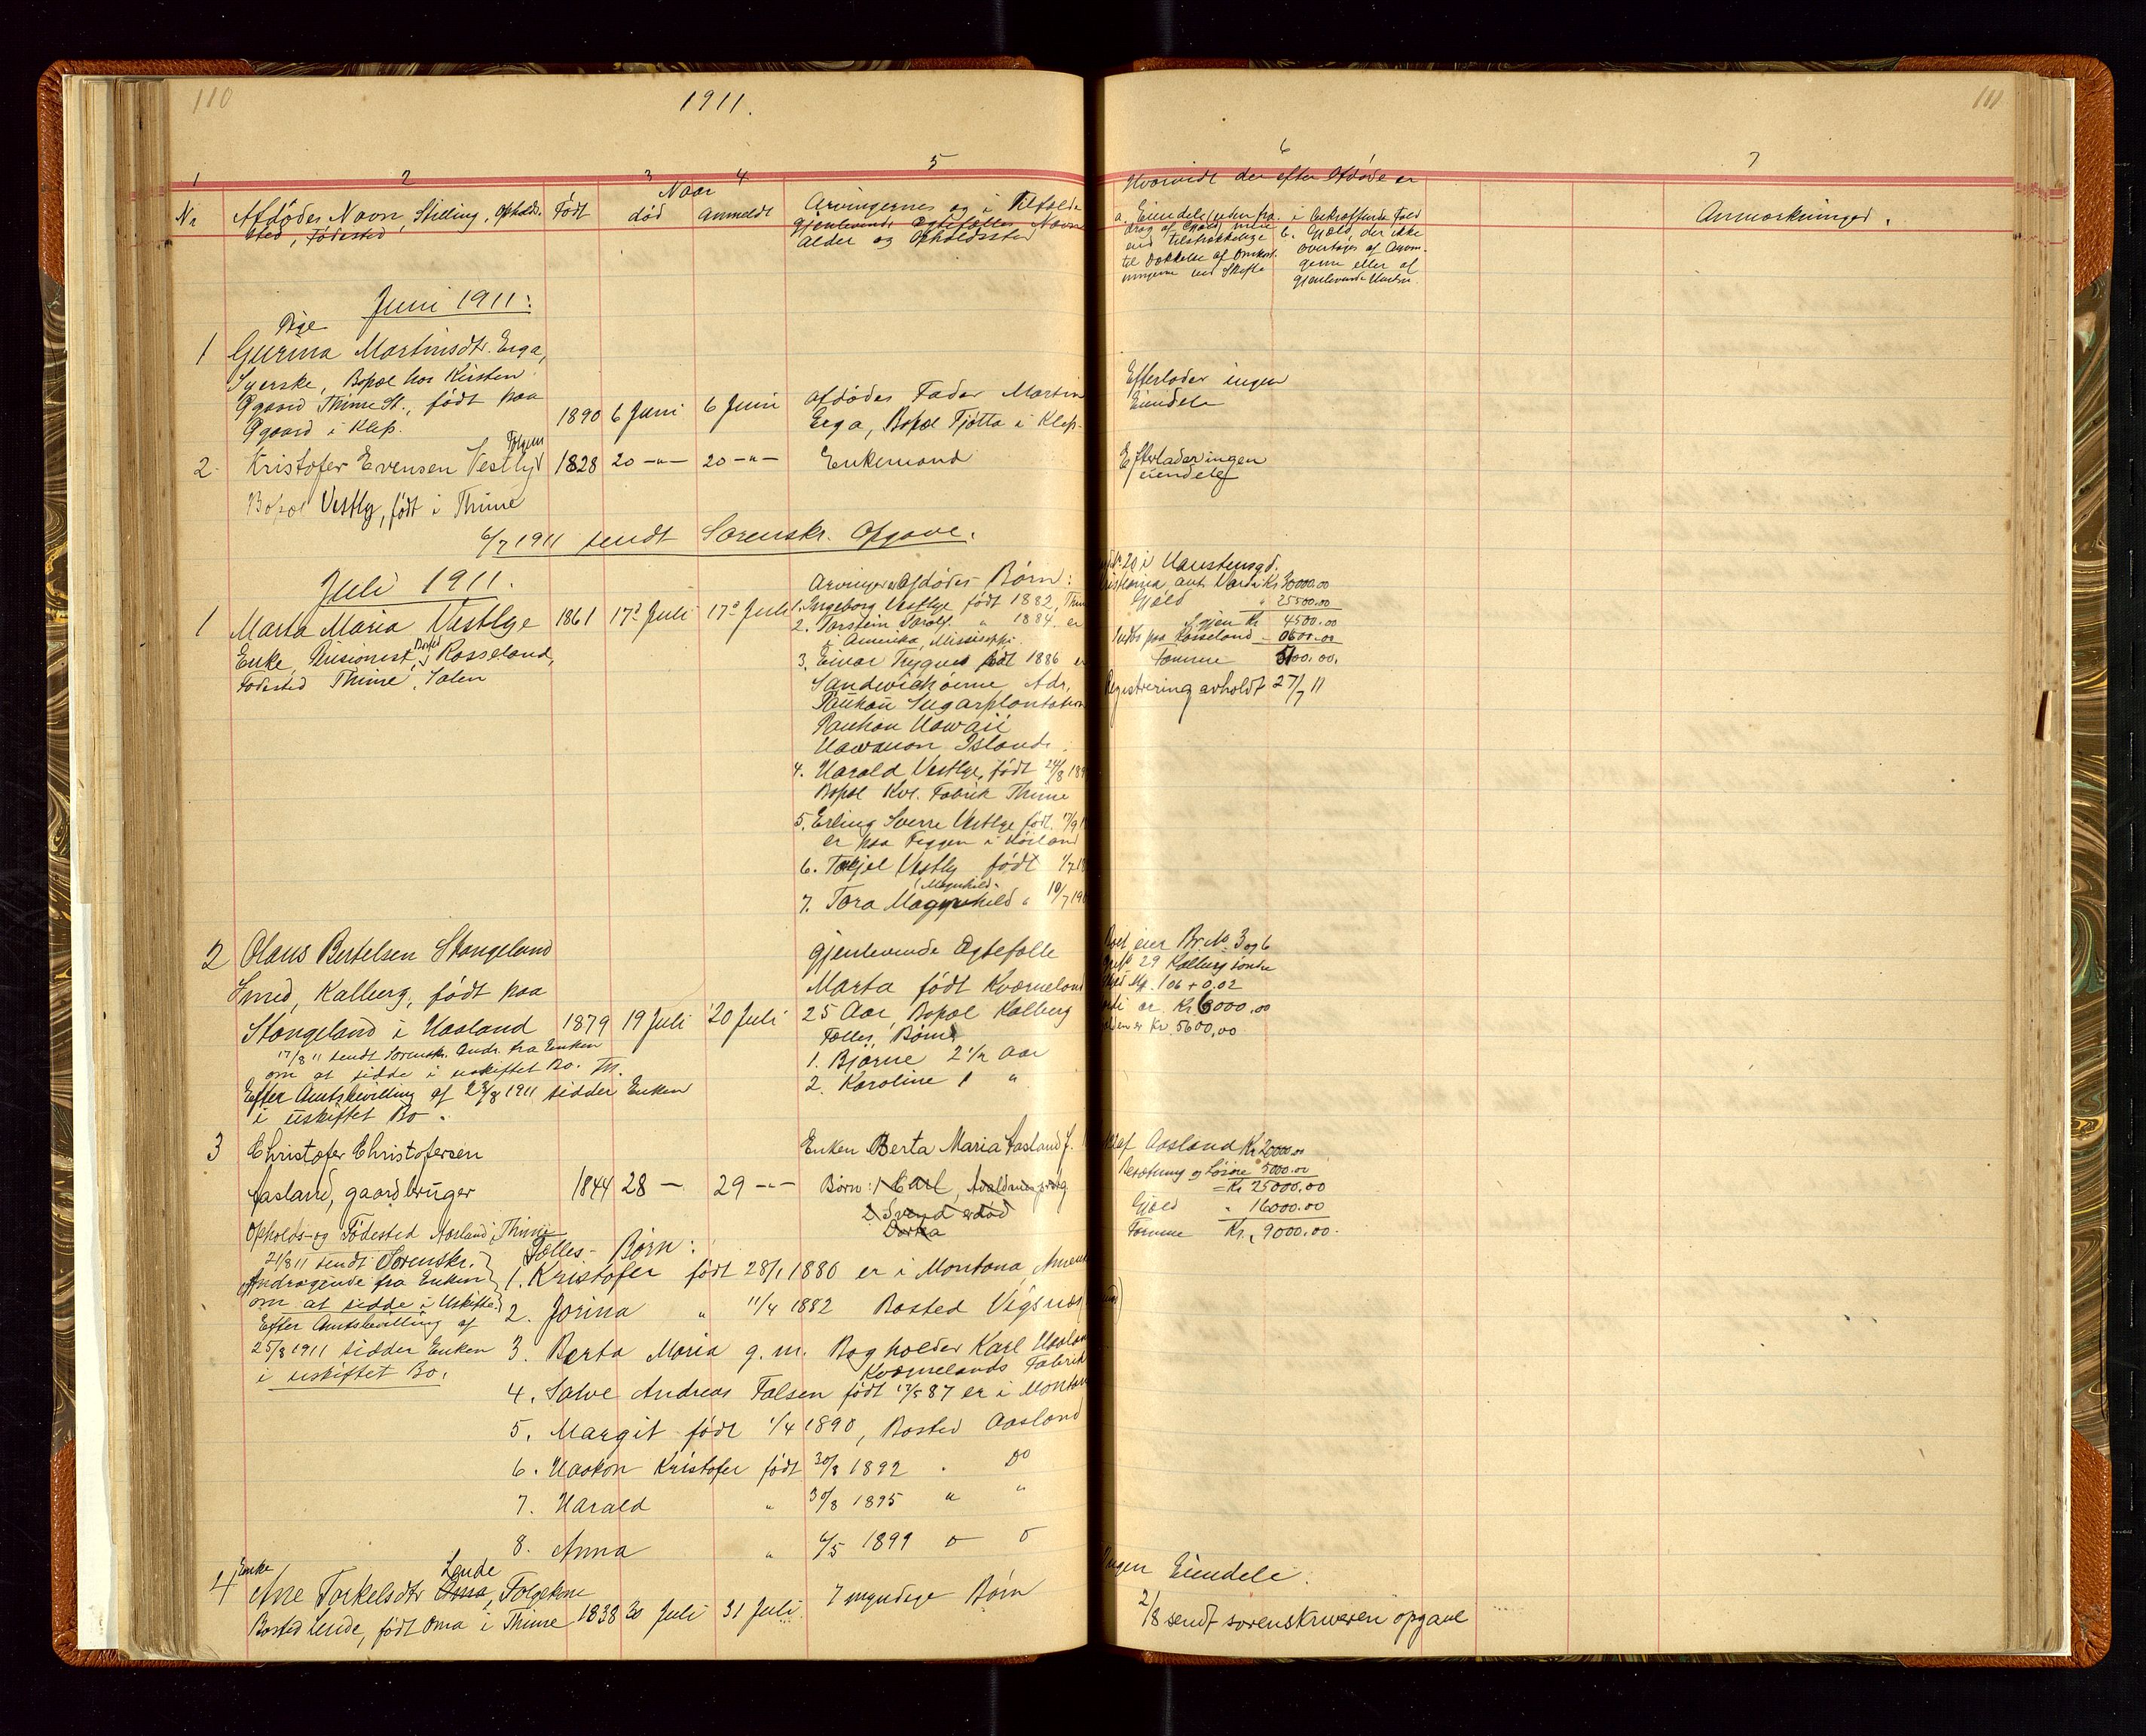 110
1911.
1 2 3 4 5
Nr Afdødes Navn, Stilling, Opholds-
sted, Fødested
Født
Naar
død anmeldt
Arvingernes og i Tilfælde
gjenlevende Ægtefælles Navne
Alder og Opholdssted
Juni 1911:
Pige
1 Gurina Martinsdtr. Erga,
Syerske, Bopæl hos Kirsten
Øgaard Thime St., født paa
Øgaard i Klep. 1890 6 Juni 6 Juni
afdødes Fader Martin
Erga, Bopæl Fjøtta i Klep.
2. Kristofer Evensen Vestly 1828 20 -"- 20 -"- Enkemand
Bopæl Vestly, født i Thime
6/7 1911 sendt Sorenskr. Opgave.
Juli 1911.
1 Marta Maria Vestlye 1861 17de Juli 17de Juli
Enke, Pensionist, Bopæl Rosseland,
Fødested Thime, Salen
Arvinger Afdødes Børn:
1. Ingeborg Vestlye født 1882,
2. Torstein Torolf " 1884. er
i Amerika, Mississippi
3. Einar Trygve født 1886 er
Sandwichøerne Adr.
Paukaa Sugarplantation
Paukaa Hawaii
Hawauon Islands.
4. Harald Vestlye, født 24/8
Bopæl Kvl. Fabrik Thime
5. Erling Sverre Vestlye født. 17/9
er paa Foggen i Høiland
6. Terjel Vestly født 1/7
7. Tora Magnhild " 10/7
(Magnhild.
2 Olaus Bertelsen Stangeland
Smed, Kalberg, født paa
Stangeland i Haaland 1879 19 Juli 20 Juli
17/8 11 sendt Sorenskr. Andr. fra Enken
om at sidde i uskiftet Bo. Th.
Efter Amtsbevilling af 23/8 1911 sidder Enken
i uskiftet Bo.
gjenlevende Ægtefælle
Marta født Kværneland
25 Aar, Bopæl Kalberg
Fælles Børn
1. Bjarne 2 1/2 Aar
2. Karoline 1 "
3 Christofer Christofersen
Aasland, gaardbruger 1844 28 - 29 -"-
Opholds- og Fødested Aasland, Thime
21/8 11 sendt Sorenskr.
Andragende fra Enken
om at sidde i Uskifte
Efter Amtsbevilling af
25/8 1911 sidder Enken
i uskiftet Bo.
Enken Berta Maria Aasland f.
Børn: 1 Carl,
2 Svend er død
Dorka
Fælles-Børn:
1. Kristofer født 28/1 1880 er i Montana,
2. Jorina " 11/4 1882 Bosted Vigsnes
3. Berta Maria g. m. Bogholder Karl
Kværnelands Fabrik
4. Salve Andreas Falsen født 17/5 87 er i Montan
5. Margit født 1/4 1890, Bosted Aasland
6. Haakon Kristofer født 30/8 1892 . Do
7. Harald " 30/8 1895 " "
8. Anna " 6/5 1899
4 Enke
Ane Torkelsdtr Oma, Lende Folgekone
Bosted Lende, født Oma i Thime 1838 30 Juli 31 Juli. 7 myndige Børn
111
6 7
Hvorvidt der efter Afdøde er
a. Eiendele (uden fra-
drag af Gjæld) mere
end tilstrækkelige
til Dækkelse af Omkost-
ningerne ved Skifte
i bekræftende Fald
b. Gjæld, der ikke
overtages af Arvin-
gerne eller af
gjenlevende Hustru.
Anmærkninger.
Efterlader ingen
Eiendele
Efterlader ingen
eiendele
20 i Haustensgd.
ant. Værdi Kr 30000.00
Gjæld " 25500.00
Igjen Kr 4500.00
paa Rosseland - 0600.00
tomme 5100.00.
Registrering avholdt 27/7 11
eier Br. No 3 og 6
29 Kalberg søndre
106 + 0,02
er Kr 6000,00
er Kr. 5600,00
af Aasland Kr 20000.00
Besætning og Løsøre " 5000.00
= Kr 25000.00
Gjæld " 16000.00
Tomme Kr. 9000.00.
Ingen Eiendele.
2/8 sendt sorenskriveren opgave